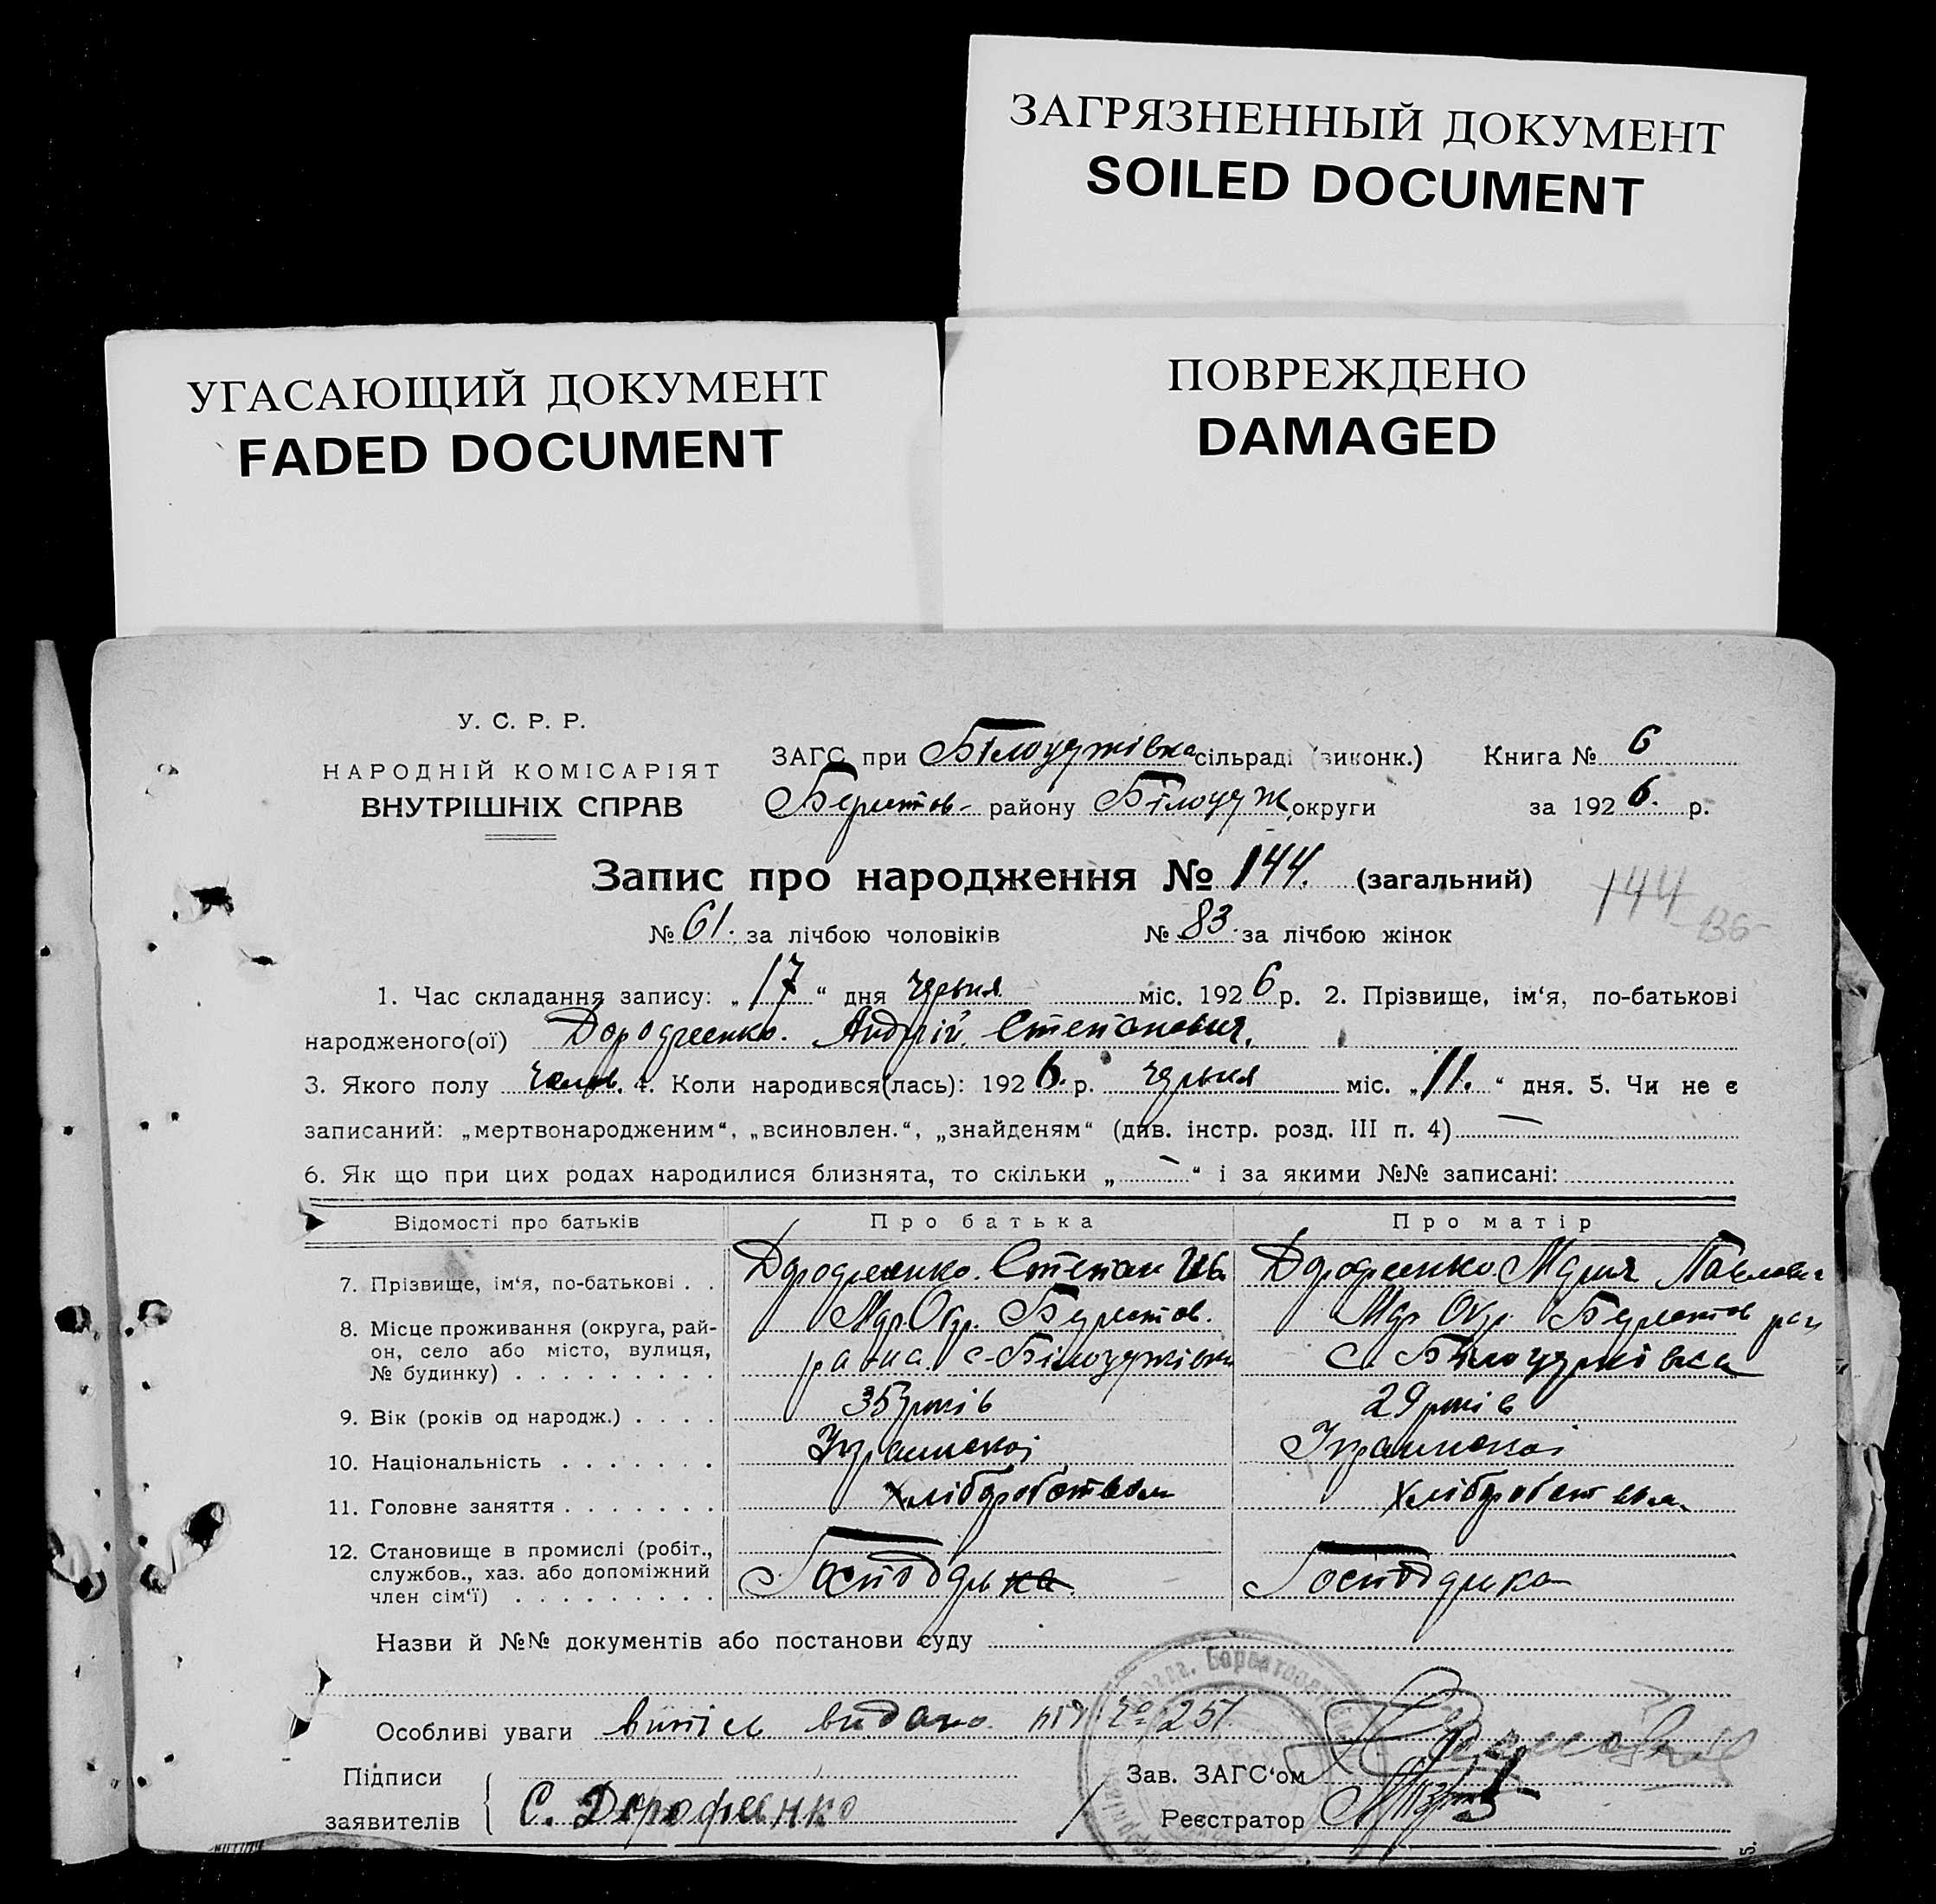 ЗАГРЯЗНЕННЫЙ ДОКУМЕНТ
SOILED DOCUMENT
УГАСАЮЩИЙ ДОКУМЕНТ
FADED DOCUMENT
ПОВРЕЖДЕНО
DAMAGED
У. С. Р. Р.
НАРОДНІЙ КОМІСАРІЯТ
ВНУТРІШНІХ СПРАВ
ЗАГС при сільраді (виконк.) Книга № 6
району округи за 1926. р.
Запис про народження № 144. (загальний)
144
136
№ 61. за лічбою чоловіків № 83. за лічбою жінок
1. Час складання запису: „17“ дня червня міс. 1926 р. 2. Прізвище, ім‘я, по-батькові
народженого(ої) Дорофеенко. Андрій. Степанович.
3. Якого полу чолов. 4. Коли народився(лась): 1926. р. червня міс. „11.“ дня. 5. Чи не є
записаний: „мертвонародженим“, „всиновлен.“, „знайденям“ (див. інстр. розд. III п. 4) —
6. Як що при цих родах народилися близнята, то скільки „—“ і за якими №№ записані:
Відомості про батьків Про батька Про матір
7. Прізвище, ім‘я, по-батькові . . Дорофеенко. Степан Ив. Дорофеенко. Мария Павловна
8. Місце проживання (округа, рай-
он, село або місто, вулиця,
№ будинку)
9. Вік (років од народж.) . . . . 35 років 29 років
10. Національність
11. Головне заняття . . . . . . . хліборобством хліборобством
12. Становище в промислі (робіт.,
службов., хаз. або допоміжний
член сім‘ї) Господарка. Господарка
Назви й №№ документів або постанови суду
Особливі уваги випісь видано під № 251.
Підписи
заявителів С. Дорофеенко
Зав. ЗАГС‘ом
Реєстратор